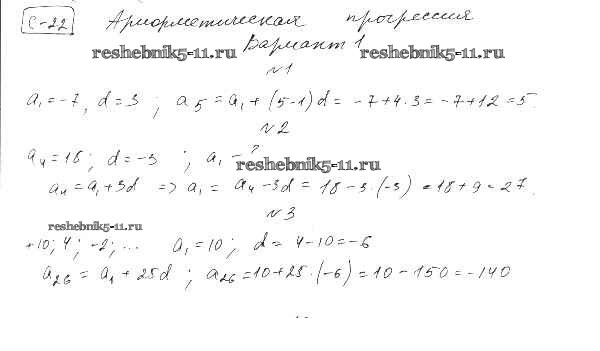 С-22 Арифметическая прогрессия
reshebnik5-11.ru Вариант 1 reshebnik5-11.ru
№1
a₁ = -7, d = 3 ; a₅ = a₁ + (5-1)d = -7+4·3 = -7+12 = 5.
№2
a₄ = 18 ; d = -3 ; a₁ - ?
reshebnik5-11.ru
a₄ = a₁ + 3d => a₁ = a₄ - 3d = 18 - 3·(-3) = 18 + 9 = 27.
№3
reshebnik5-11.ru
+10; 4; -2; ... a₁ = 10; d = 4-10 = -6
a₂₆ = a₁ + 25d ; a₂₆ = 10+25·(-6) = 10 - 150 = -140